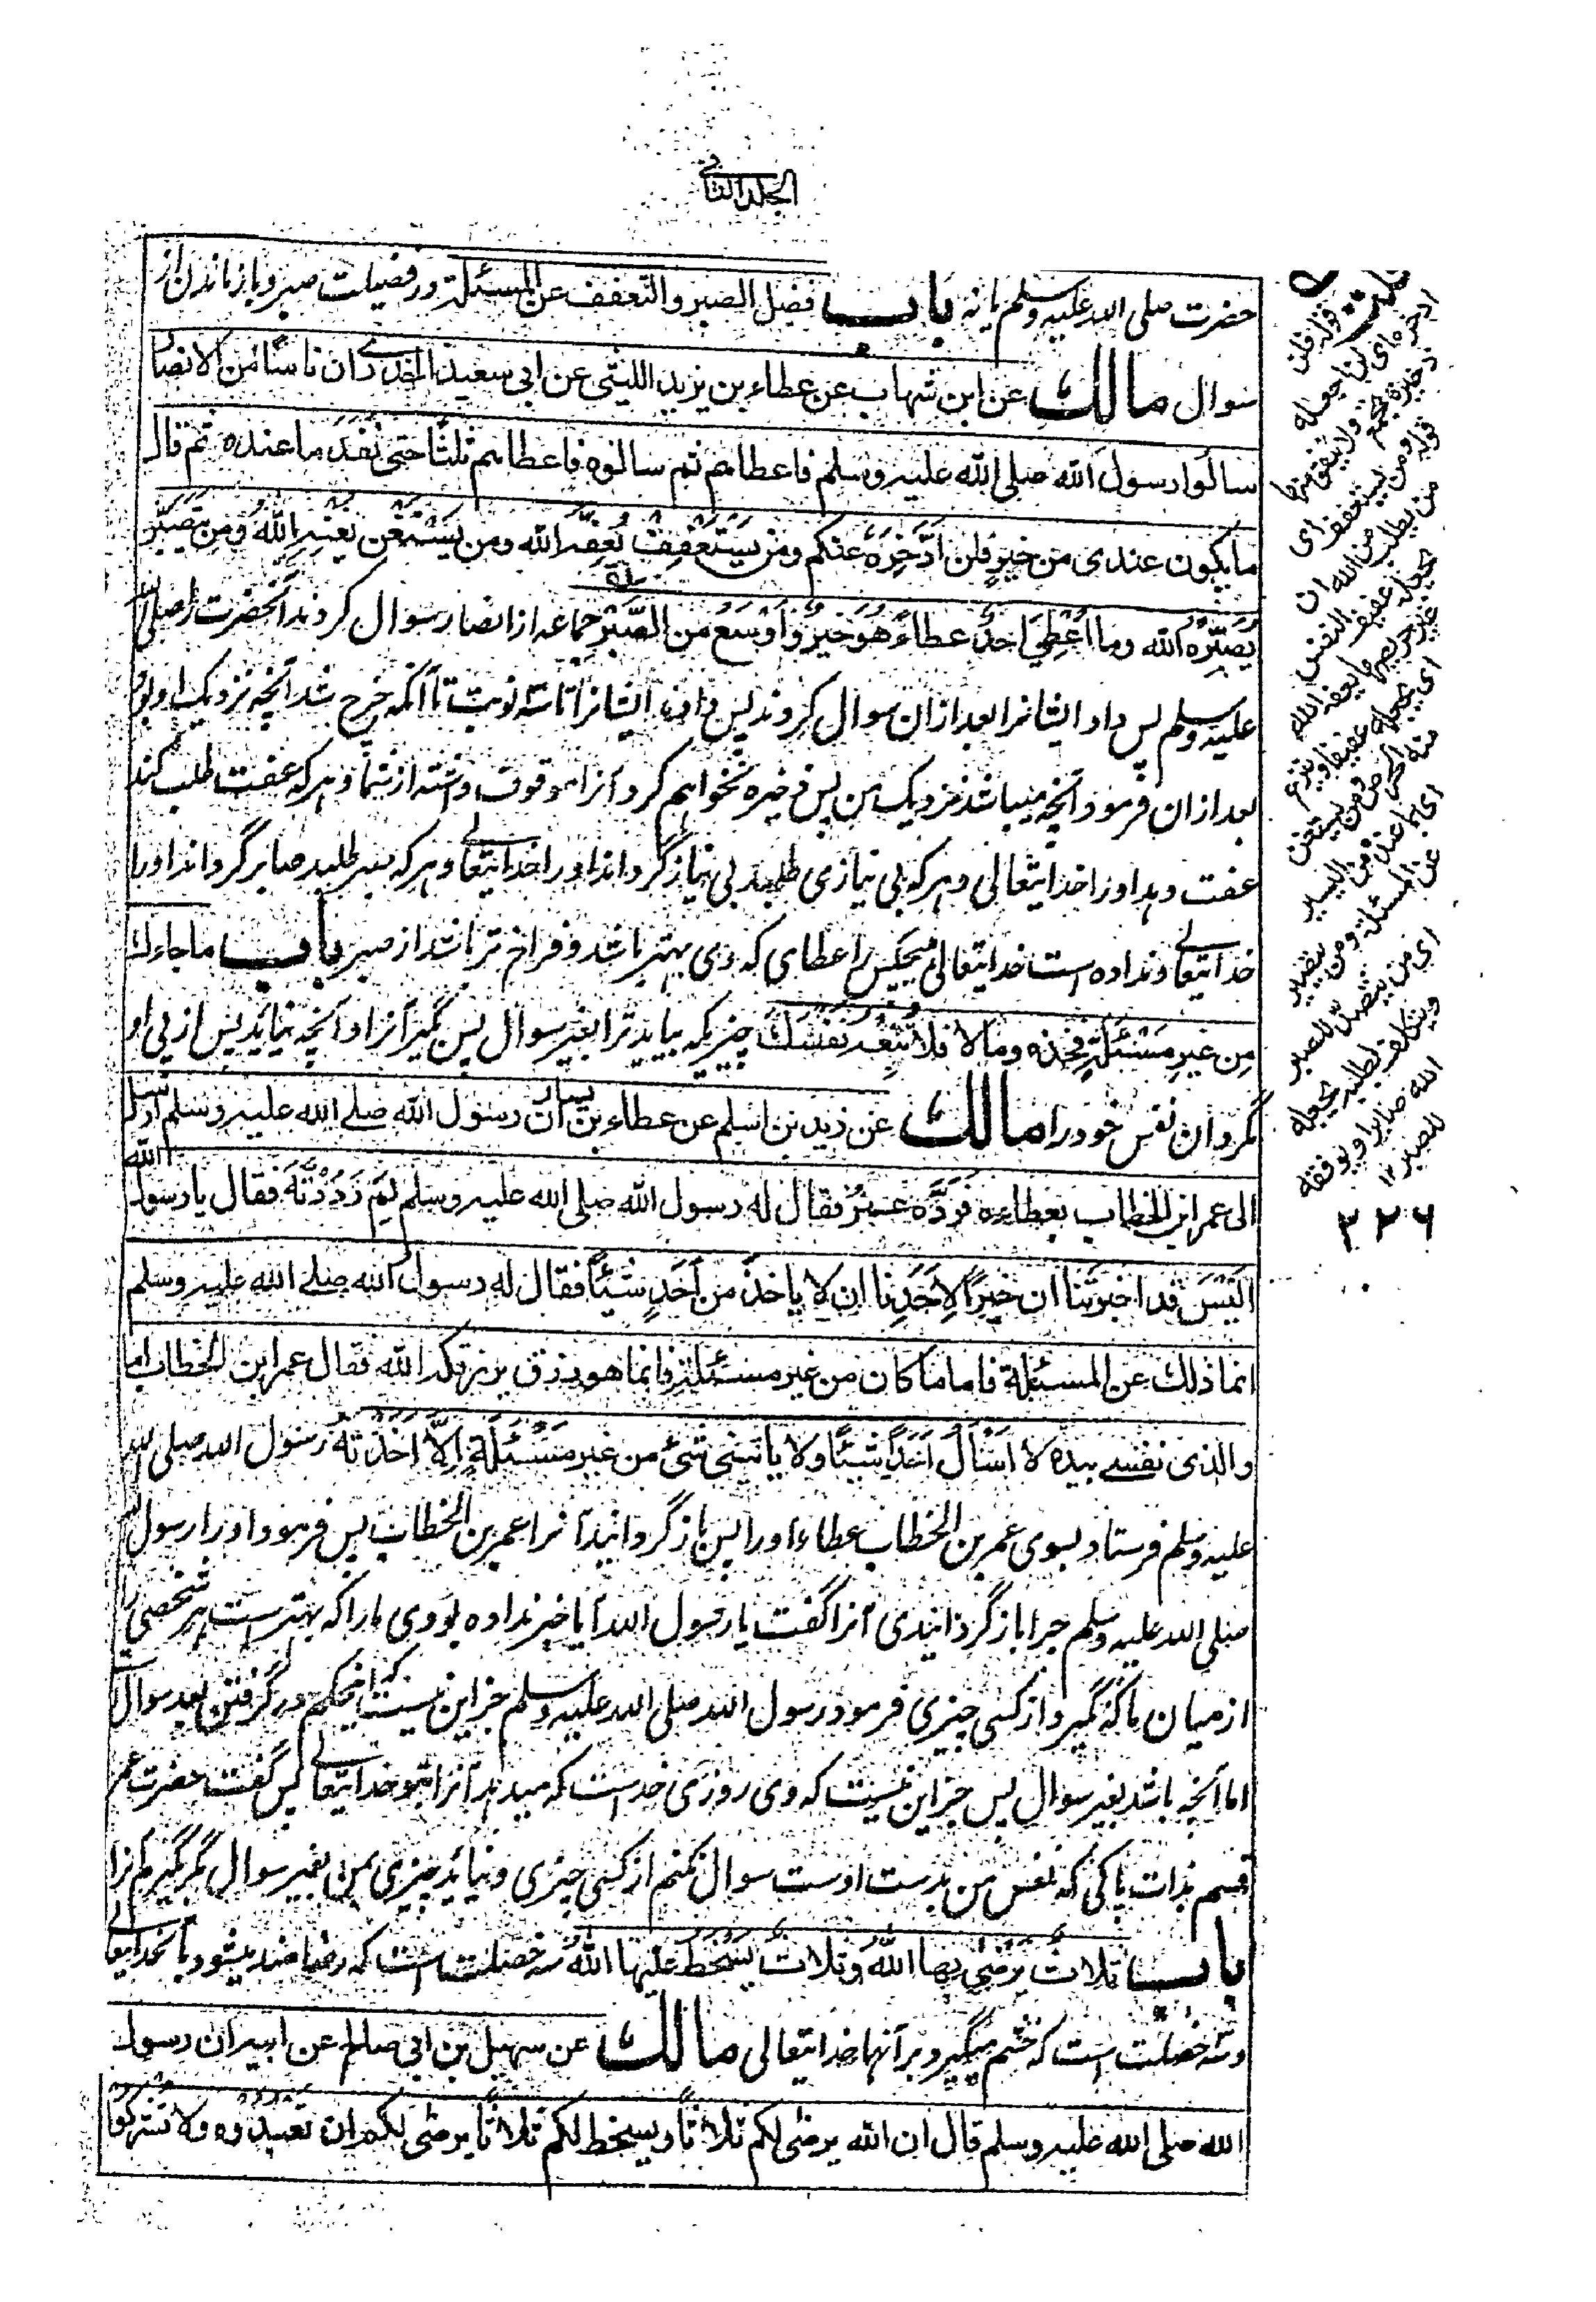 الجلد الثانی
حضرت صلی الله علیه وسلم یا نه باب فضل الصبر والتعفف عن المسئلة در فضیلت صبر و باز ماندن از
سوال مالك عن ابن شهاب عن عطاء بن یزید اللیثی عن ابی سعید الخدری ان ناسًا من الانصار
سالوا رسول الله صلی الله علیه وسلم فاعطاهم ثم سالوه فاعطاهم ثلثًا حتی نفد ما عنده ثم قال
ما یکون عندی من خیرٍ فلن ادَّخِرَهُ عنکم ومن یستعفِف یُعِفّهُ الله ومن یَسْتَغْنِ یُغْنِهِ اللهُ ومن یَتَصَبَّرْ
یُصَبِّرْهُ الله وما اُعْطِیَ احدٌ عطاءً هُوَ خیرٌ وَاَوْسَعُ من الصَّبْرِ جماعه از انصار سوال کردند آنحضرت را صلی الله
علیه وسلم پس داد ایشانرا بعد ازان سوال کردند پس داد ایشانرا تا سه نوبت تا آنکه خرج شد آنچه نزدیک او بود
بعد ازان فرمود آنچه میباشد نزدیک من پس ذخیره نخواهم کرد آنرا موقوف داشته از شما و هر که عفت طلب کند
عفت دهد او را خدایتعالی و هر که بی نیازی طلبد بی نیاز گرداند او را خدایتعالی و هر که صبر طلبد صابر گرداند او را
خدایتعالی و نداده است خدایتعالی هیچکس را عطای که وی بهتر باشد و فراخ تر باشد از صبر باب ما جاءك
مِن غیرِ مَسْئَلَةٍ فخذه وما لا فلا تُتبِعْهُ نَفْسَكَ چیزیکه بیاید ترا بغیر سوال پس بگیر آنرا و آنچه نیاید پس از پی او
مگردان نفس خود را مالك عن زید بن اسلم عن عطاء بن یسار ان رسول الله صلے الله علیه وسلم ارسل
الی عمر ابن الخطاب بعطاءٍ فردَّه عمرُ فقال له رسول الله صلی الله علیه وسلم لِمَ رَدَدْتَّهُ فقال یا رسول الله
اَلَیْسَ قد اخبرتَنا ان خیرًا لِاَحَدِنا ان لا یاخذ من اَحَدٍ شیئًا فقال له رسول الله صلے الله علیه وسلم
انما ذلك عن المسئلة فاما ما کان من غیر مسئلةٍ فانما هو رزق یرزقکه الله فقال عمر ابن الخطاب اما
والذی نفسے بیده لا اَسْاَلُ اَحَدًا شیئًا ولا یاتینی شئ من غیر مَسْئَلَةٍ اِلَّا اَخَذْتُهُ رسول الله صلی الله
علیه وسلم فرستاد بسوی عمر بن الخطاب عطاء او را پس باز گردانید آنرا عمر بن الخطاب پس فرمود او را رسول الله
صلی الله علیه وسلم چرا باز گردانیدی آنرا گفت یا رسول الله آیا خبر نداده بودی ما را که بهتر است هر شخصی را
از میان ما که نگیرد از کسی چیزی فرمود رسول الله صلی الله علیه وسلم جز این نیست که اینحکم در گرفتن بعد سوال است
اما آنچه باشد بغیر سوال پس جز این نیست که وی روزی خداست که میدهد آنرا بتو خدایتعالی پس گفت حضرت عمر
قسم بذات پاکی که نفس من بدست اوست سوال نکنم از کسی چیزی و نیاید چیزی بمن بغیر سوال مگر بگیرم آنرا
باب ثلاثٌ یرضٰی بها اللهُ وثلاثٌ یَسْخَطُ علیها اللهُ سه خصلت است که رضامند میشود بآن خدایتعالی
و سه خصلت است که خشم میگیرد بر آنها خدایتعالی مالك عن سهیل بن ابی صالح عن ابیه ان رسول
الله صلی الله علیه وسلم قال ان الله یرضٰی لکم ثلاثًا ویسخط لکم ثلاثًا یرضٰی لکم ان تعبدوه ولا تشرکوا
قوله فلن
ادخره ای لن اجعله
ذخیرة
قوله ومن یستعفف ای
من یطلب من الله ان
یجعله عفیف النفس
یعفه الله
ای یجعله عفیفا
ومن یستغن
عن المسئلة ومن یتصبر
ای من
یجعله
الله صابرا ویوفقه
للصبر ١٢
٢٢٦